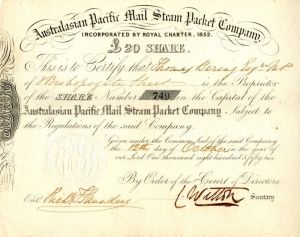 Australasian Pacific Mail Steam Packet Company,
INCORPORATED BY ROYAL CHARTER, 1852.
£20 SHARE.
This is to Certify that Thomas
of is the Proprietor
of the SHARE Number 749 in the Capital of the
Australasian Pacific Mail Steam Packet Company. Subject to
the Regulations of the said Company.
Given under the Common Seal of the said Company
the 12th day of October in the year of
our Lord One thousand eight hundred & fifty two
By Order of the Court of Directors
Entd.
Secretary